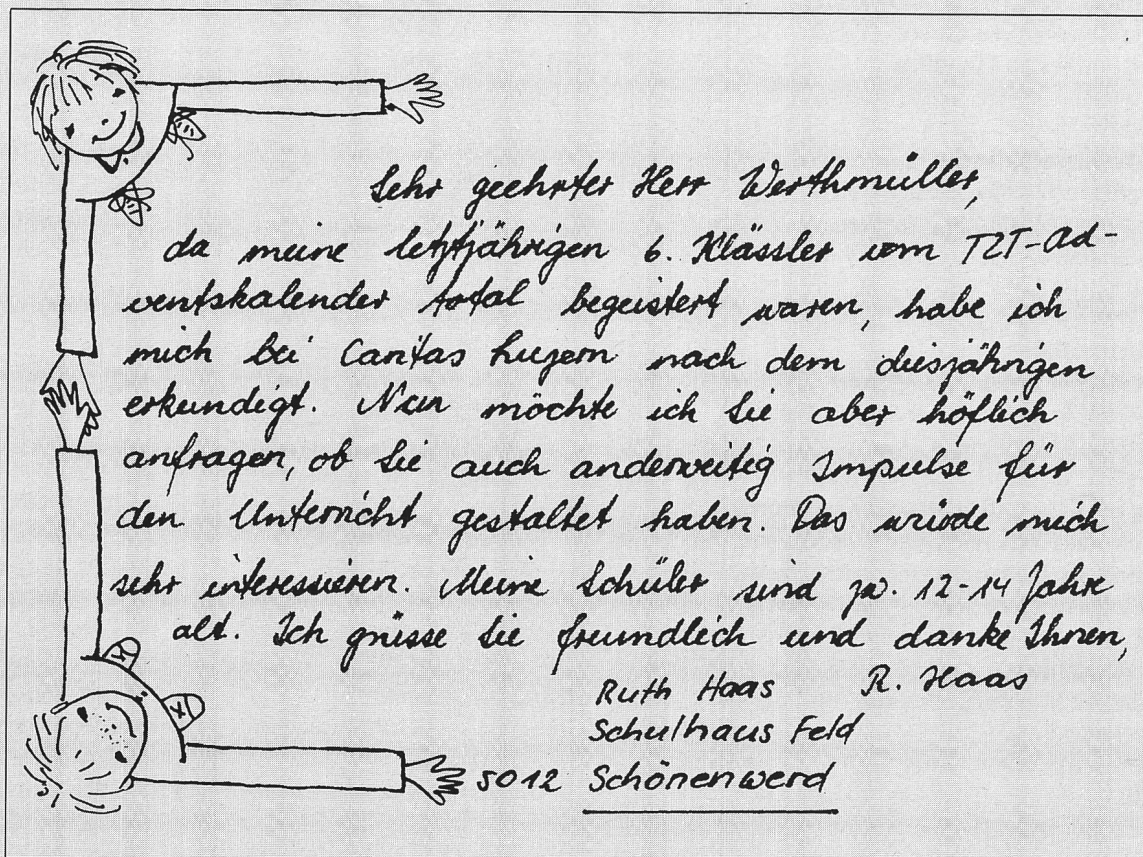 Sehr geehrter Herr Werthmüller,
da meine letztjährigen 6. Klässler vom TZT-Ad-
ventskalender total begeistert waren, habe ich
mich bei Caritas Luzern nach dem diesjährigen
erkundigt. Nun möchte ich Sie aber höflich
anfragen, ob Sie auch anderweitig Impulse für
den Unterricht gestaltet haben. Das würde mich
sehr interessieren. Meine Schüler sind zw. 12-14 Jahre
alt. Ich grüsse Sie freundlich und danke Ihnen,
Ruth Haas R. Haas
Schulhaus Feld
5012 Schönenwerd